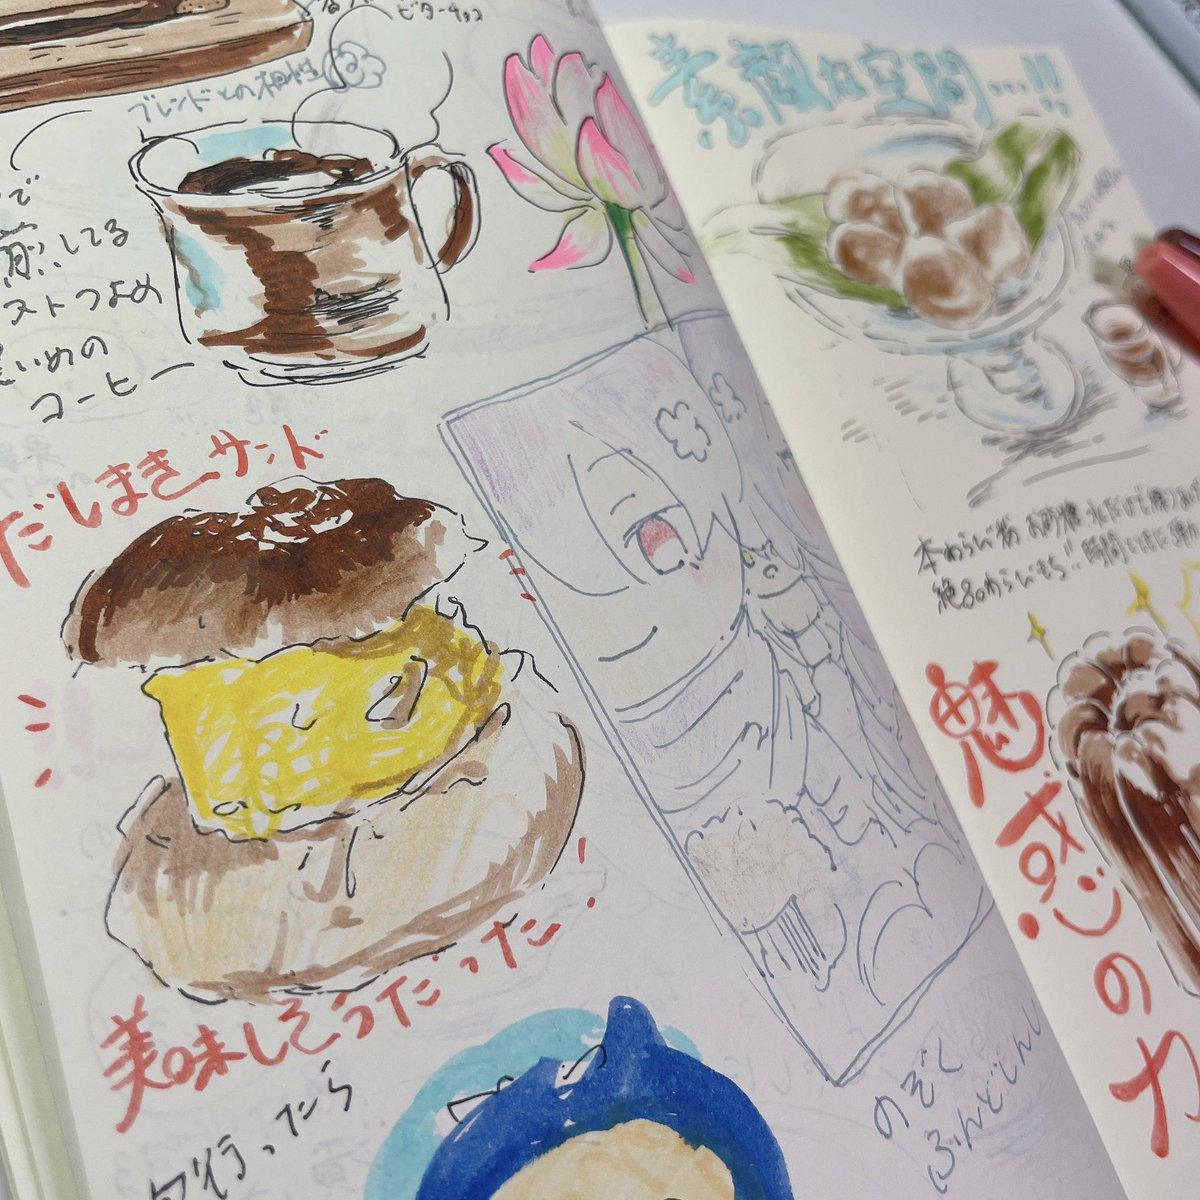 ビターチョコ
ブレンドとの相性
で
煎してる
ストつよめ
いめの
コーヒー
だしまきサンド
美味しそうだった!
夕行ったら
のぞく
ふんどしん
素敵な空間…!!
本わらび粉 お砂糖 水だけで
絶品わらびもち!! 時間とともに
魅惑のカ